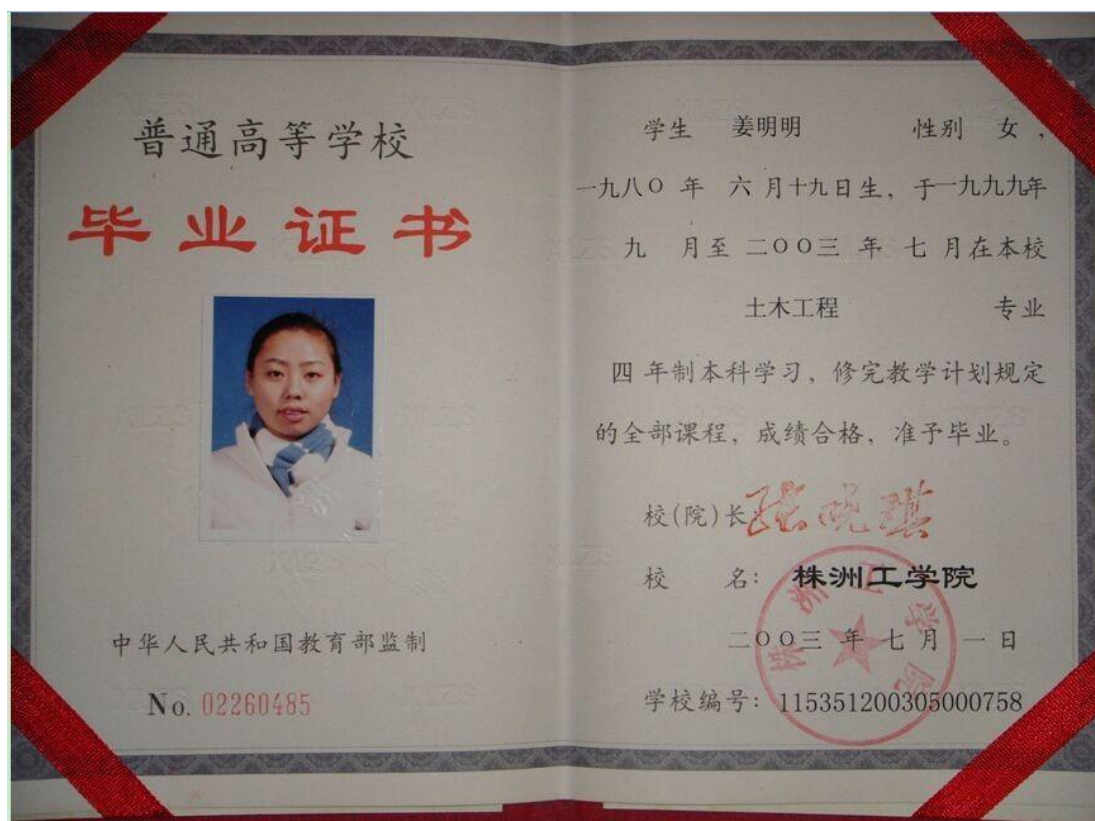 普通高等学校
毕业证书
中华人民共和国教育部监制
No. 02260485
学生 姜明明 性别 女，
一九八〇 年 六 月十九日生，于一九九九年
九 月至 二〇〇三 年 七 月在本校
土木工程 专业
四 年制本科学习，修完教学计划规定
的全部课程，成绩合格，准予毕业。
校(院)长 张晓琪
校 名： 株洲工学院
二〇〇三 年 七 月 一 日
学校编号：115351200305000758
株洲工学院